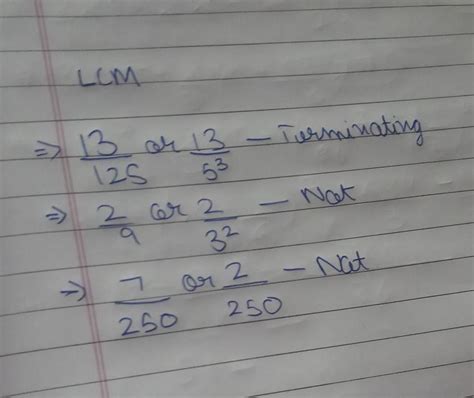 LCM
⇒ 13/125 or 13/5³ — Terminating
⇒ 2/9 or 2/3² — Not
⇒ 7/250 or 2/250 — Not